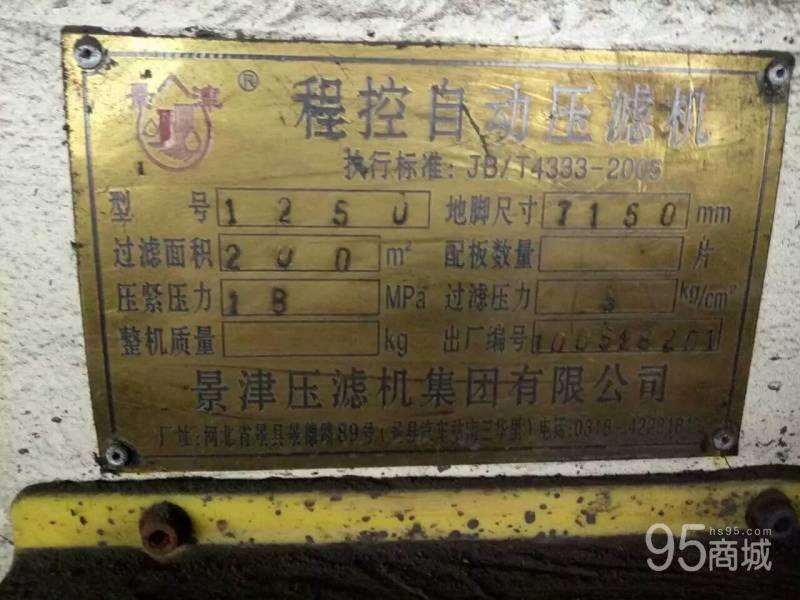 景津 ®
程控自动压滤机
执行标准：JB/T4333-2005
型 号 1250 地脚尺寸 7150 mm
过滤面积 200 m² 配板数量 片
压紧压力 18 MPa 过滤压力 kg/cm²
整机质量 kg 出厂编号
景津压滤机集团有限公司
厂址：河北省景县景德路89号 电话:0318-
hs95.com
95商城